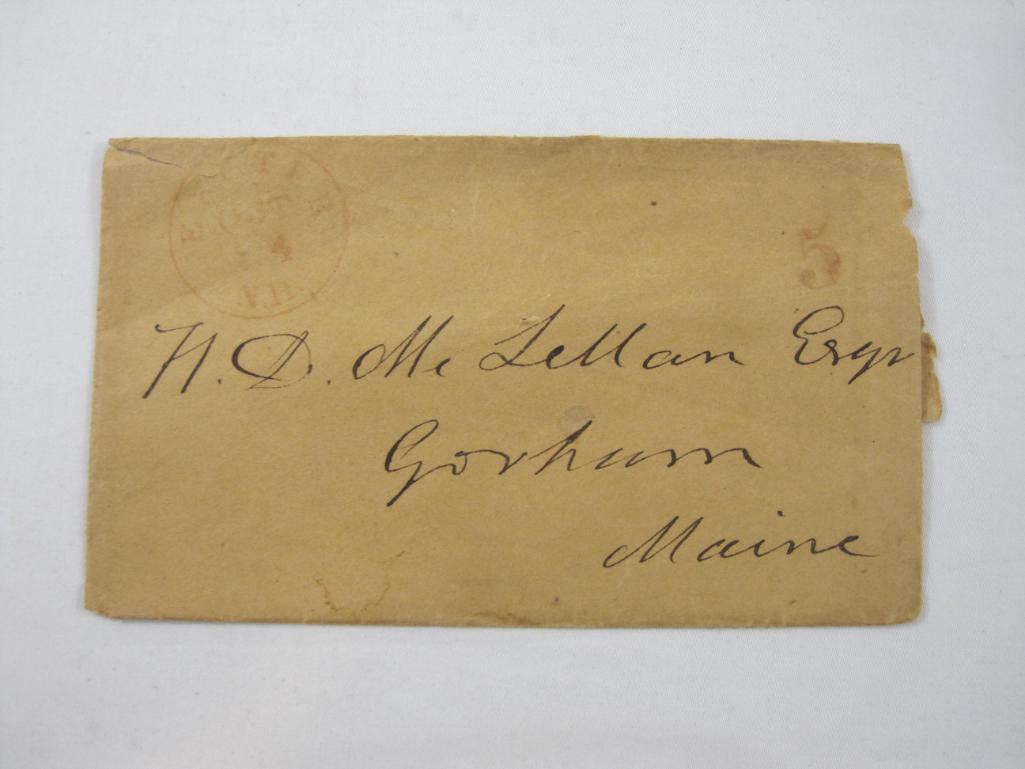 OCT
4
N.H.
5
H. D. Mc Lellan Esqr
Gorham
Maine